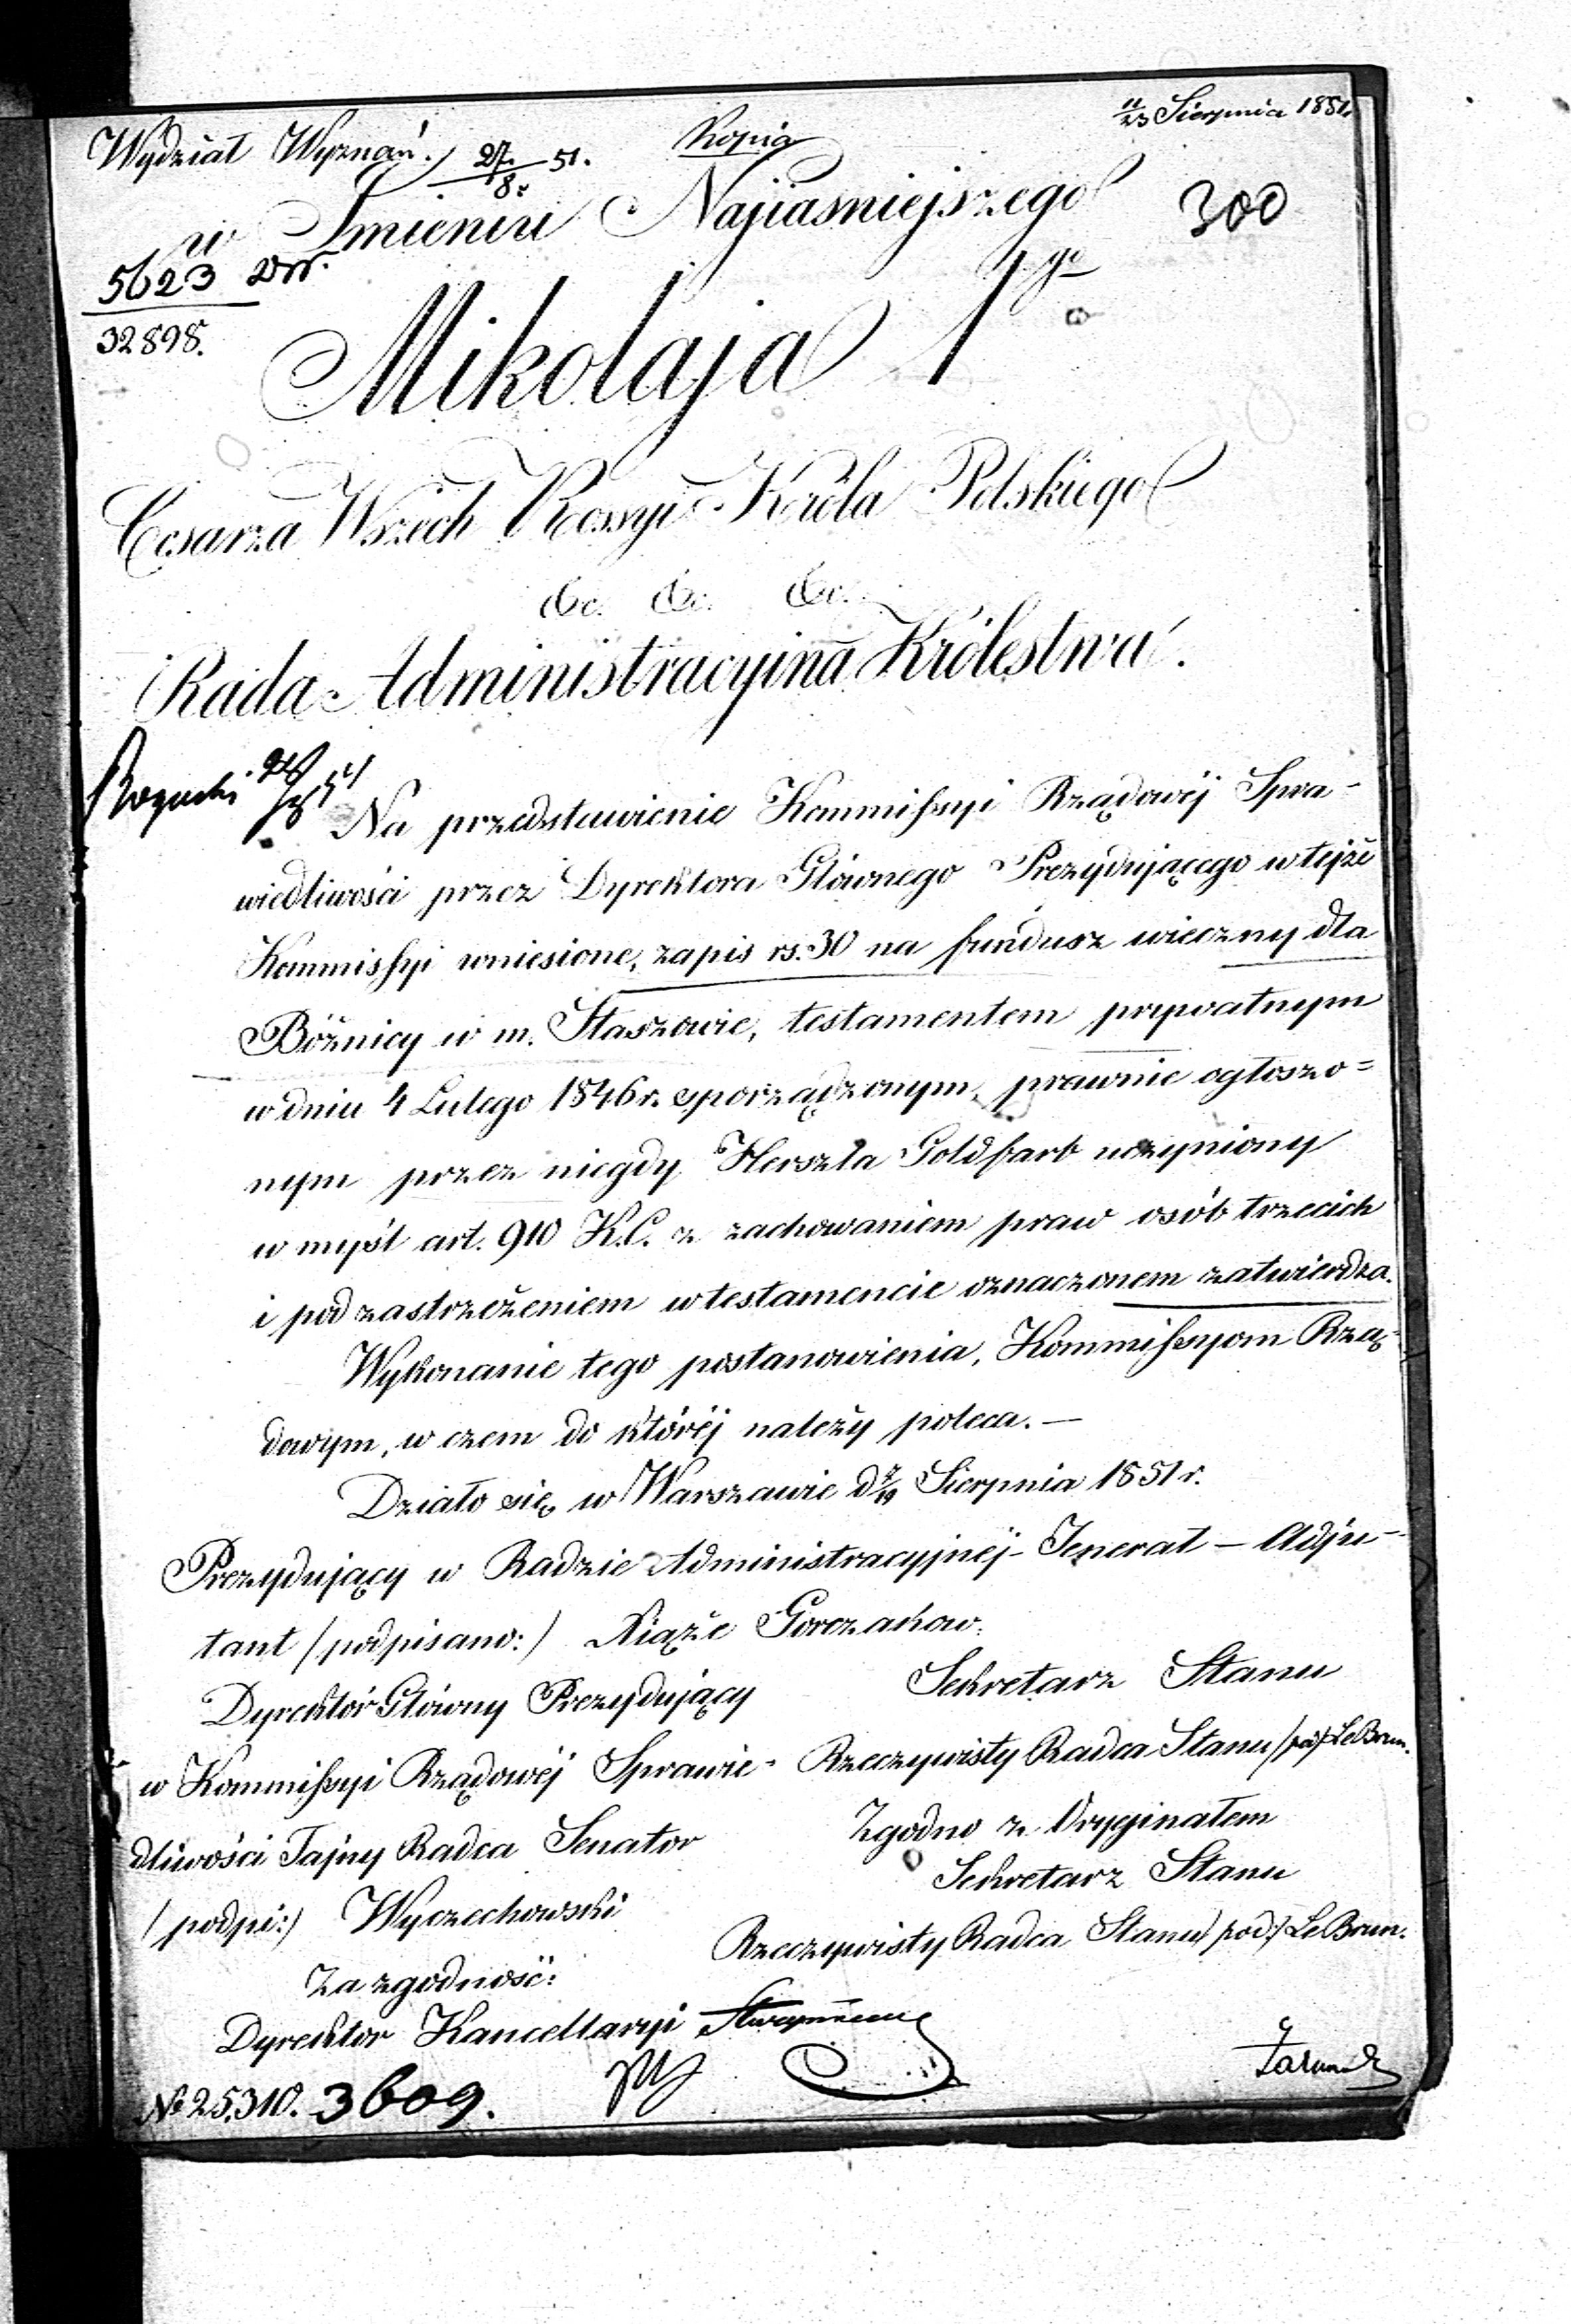 11/23 Sierpnia 1851.
Wydział Wyznań. 27/8 51. Kopia
w Imieniu Najiaśniejszego
300
5623
32898.
Mikołaja 1go
Cesarza Wszech Rossyi Króla Polskiego
&c. &c. &c.
Rada Administracyina Królestwa.
Na przedstawienie Kommissyi Rządowéj Spra-
wiedliwości przez Dyrektora Głównego Prezydującego w tejże
Kommissyi wniesione, zapis rs. 30 na fundusz wieczny dla
Bóżnicy w m. Staszowie, testamentem prywatnym
w dniu 4 Lutego 1846 r. sporządzonym, prawnie ogłoszo=
nym przez niegdy Herszla Goldfarb uczyniony
w myśl art. 910 K.C. z zachowaniem praw osób trzecich
i pod zastrzeżeniem w testamencie oznaczonem zatwierdza.
Wykonanie tego postanowienia, Kommissyom Rzą-
dowym, w czem do któréj należy poleca.—
Działo się w Warszawie d 7/19 Sierpnia 1851 r.
Prezydujący w Radzie Administracyjnéj- Jenerał — Adju-
tant /podpisano:/ Xiąże Gorczakow.
Dyrektór Główny Prezydujący
w Kommissyi Rządowéj Sprawie-
dliwości Tajny Radca Senator
/podpi:/ Wyczechowski
Sekretarz Stanu
Rzeczywisty Radca Stanu /pod/ LeBrun.
Zgodno z Oryginałem
Sekretarz Stanu
Rzeczywisty Radca Stanu /pod:/ LeBrun.
Za zgodność:
Dyrektor Kancellaryi
№ 25,310. 3609.